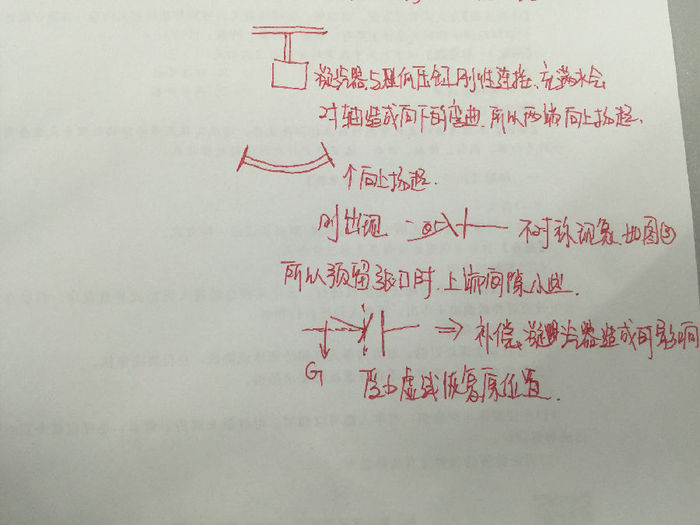 凝汽器与低压缸刚性连接、充满水会
对轴造成向下的弯曲、所以两端向上扬起.
个向上扬起.
则出现 不对称现象.如图②
所以预留张口时.上端间隙小些.
⇒ 补偿、凝汽器造成的影响
G
受力虚线恢复原位置.